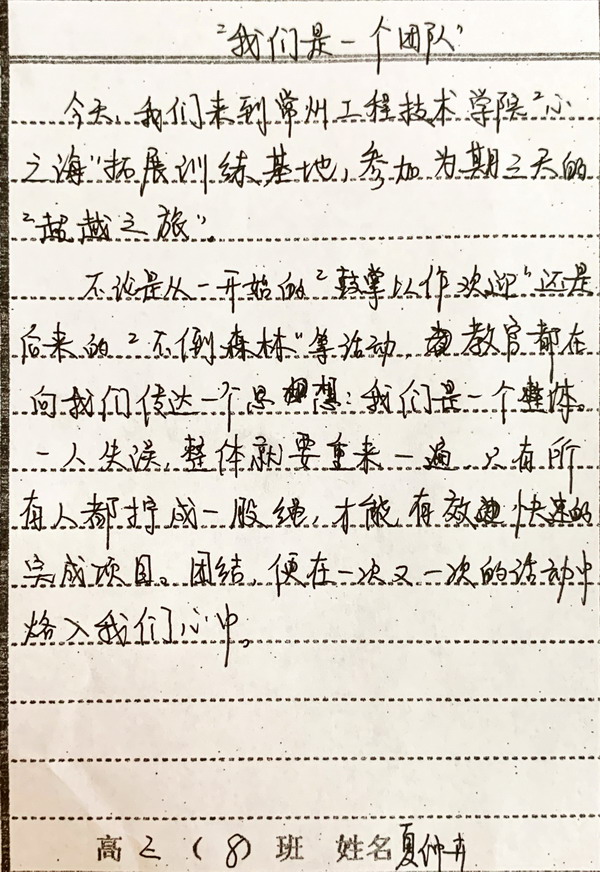 “我们是一个团队”
今天，我们来到常州工程技术学院“心
之海”拓展训练基地，参加为期三天的
“超越之旅”。
不论是从一开始的“鼓掌以作欢迎”还是
后来的“不倒森林”等活动，教官都在
向我们传达一个思想：我们是一个整体。
一人失误，整体就要重来一遍，只有所
有人都拧成一股绳，才能有效快速的
完成项目。团结，便在一次又一次的活动中
烙入我们心中。
高二（8）班 姓名夏仲卉